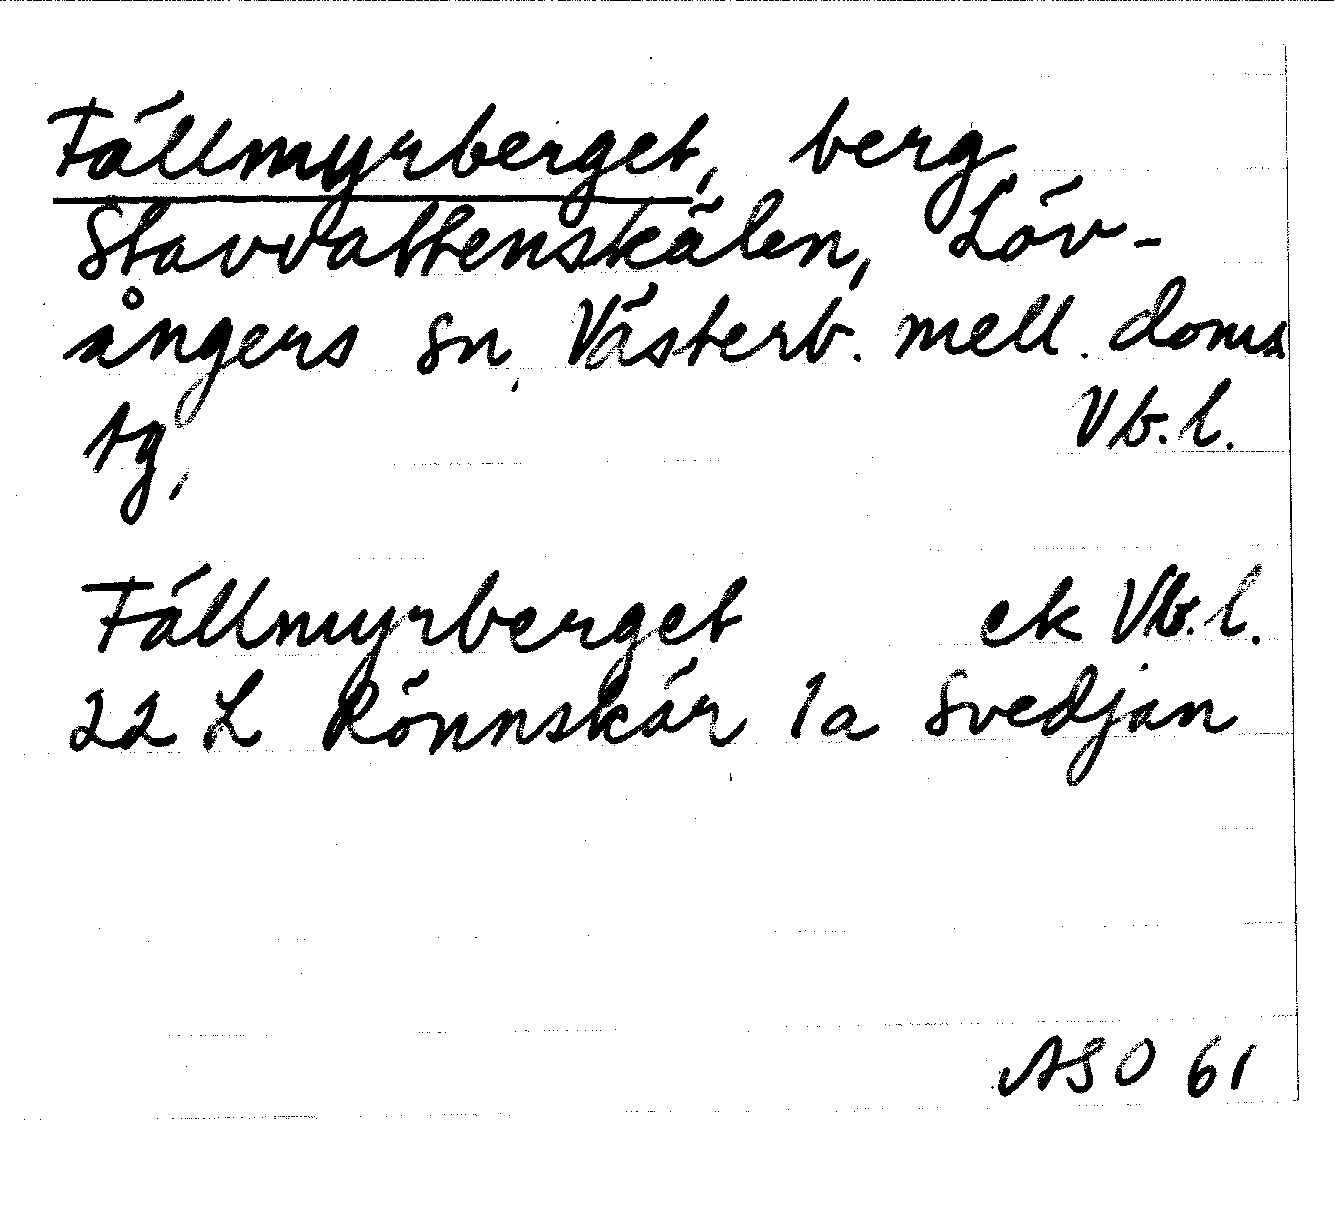 Fällmyrberget, berg
Stavvattenskälen, Löv-
ångers sn, Västerb. mell. doms
tg, Vb. l.
Fällmyrberget ek Vb. l.
22 L Rönnskär 1a Svedjan
ASO 61